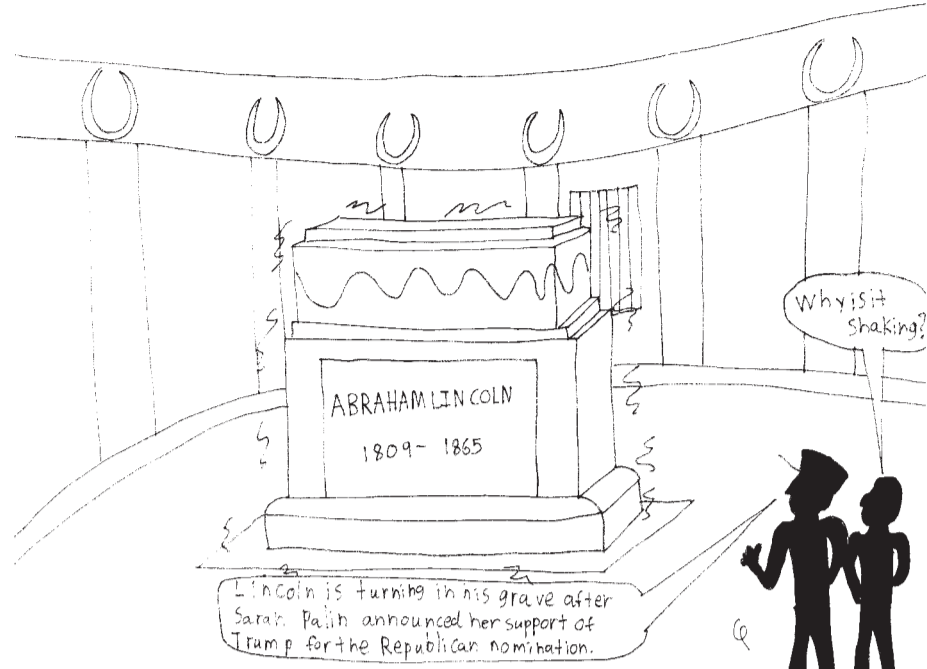 Why is it
shaking?
ABRAHAM LINCOLN
1809- 1865
Lincoln is turning in his grave after
Sarah Palin announced her support of
Trump for the Republican nomination.